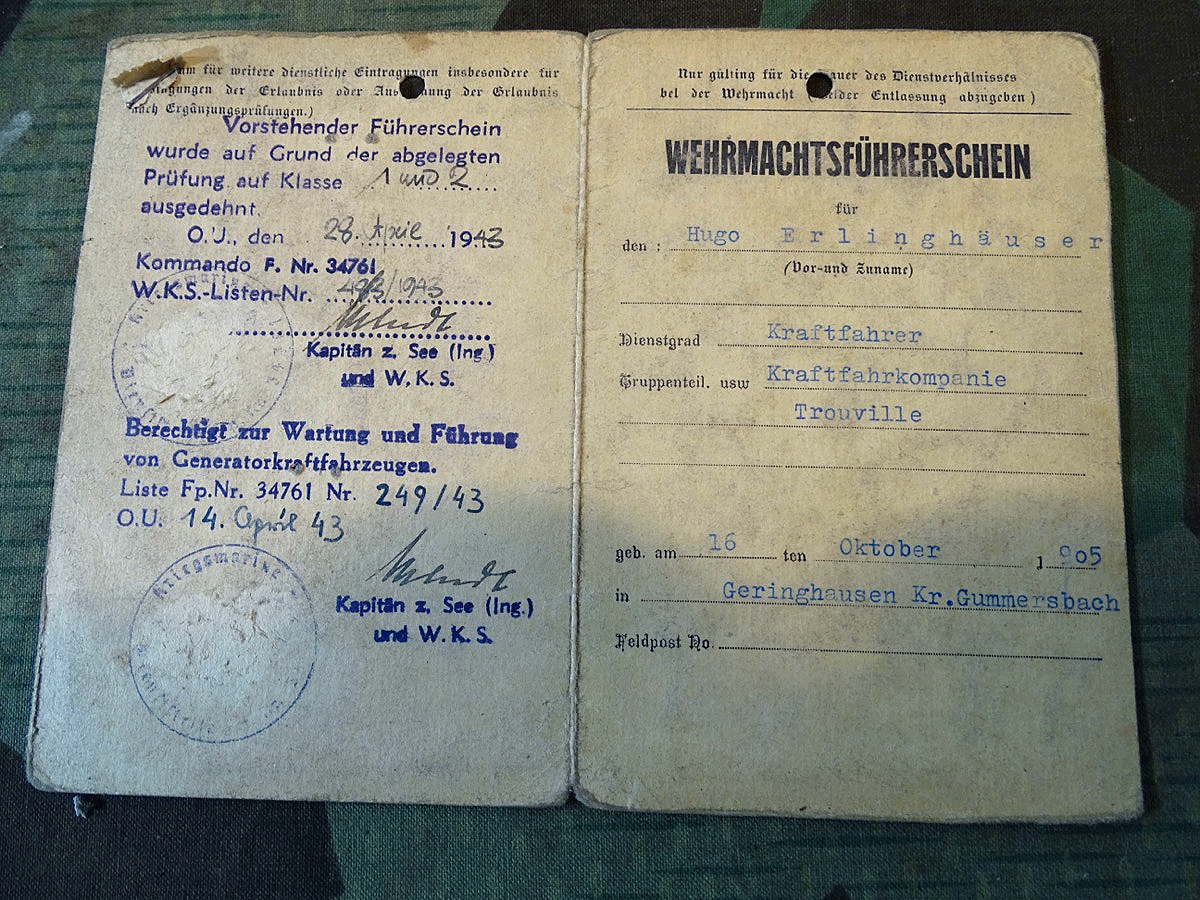 um für weitere dienstliche Eintragungen insbesondere für
ngungen der Erlaubnis oder Ausdehnung der Erlaubnis
nach Ergänzungsprüfungen.)
Vorstehender Führerschein
wurde auf Grund der abgelegten
Prüfung auf Klasse 1 und 2
ausgedehnt.
O.U., den 28. April 1943
Kommando F. Nr. 34761
W.K.S.-Listen-Nr. /1943
Kapitän z. See (Ing.)
und W.K.S.
Berechtigt zur Wartung und Führung
von Generatorkraftfahrzeugen.
Liste Fp.Nr. 34761 Nr. 249/43
O.U. 14. April 43
Kriegsmarine
Kapitän z. See (Ing.)
und W.K.S.
Nur gülting für die Dauer des Dienstverhälnisses
bel der Wehrmacht ( der Entlassung abzugeben )
WEHRMACHTSFÜHRERSCHEIN
für
den : Hugo Erlinghäuser
(Vor-und Zuname)
Dienstgrad Kraftfahrer
Gruppenteil. usw Kraftfahrkompanie
Trouville
geb. am 16 ten Oktober 1905
in Geringhausen Kr.Gummersbach
Feldpost No.